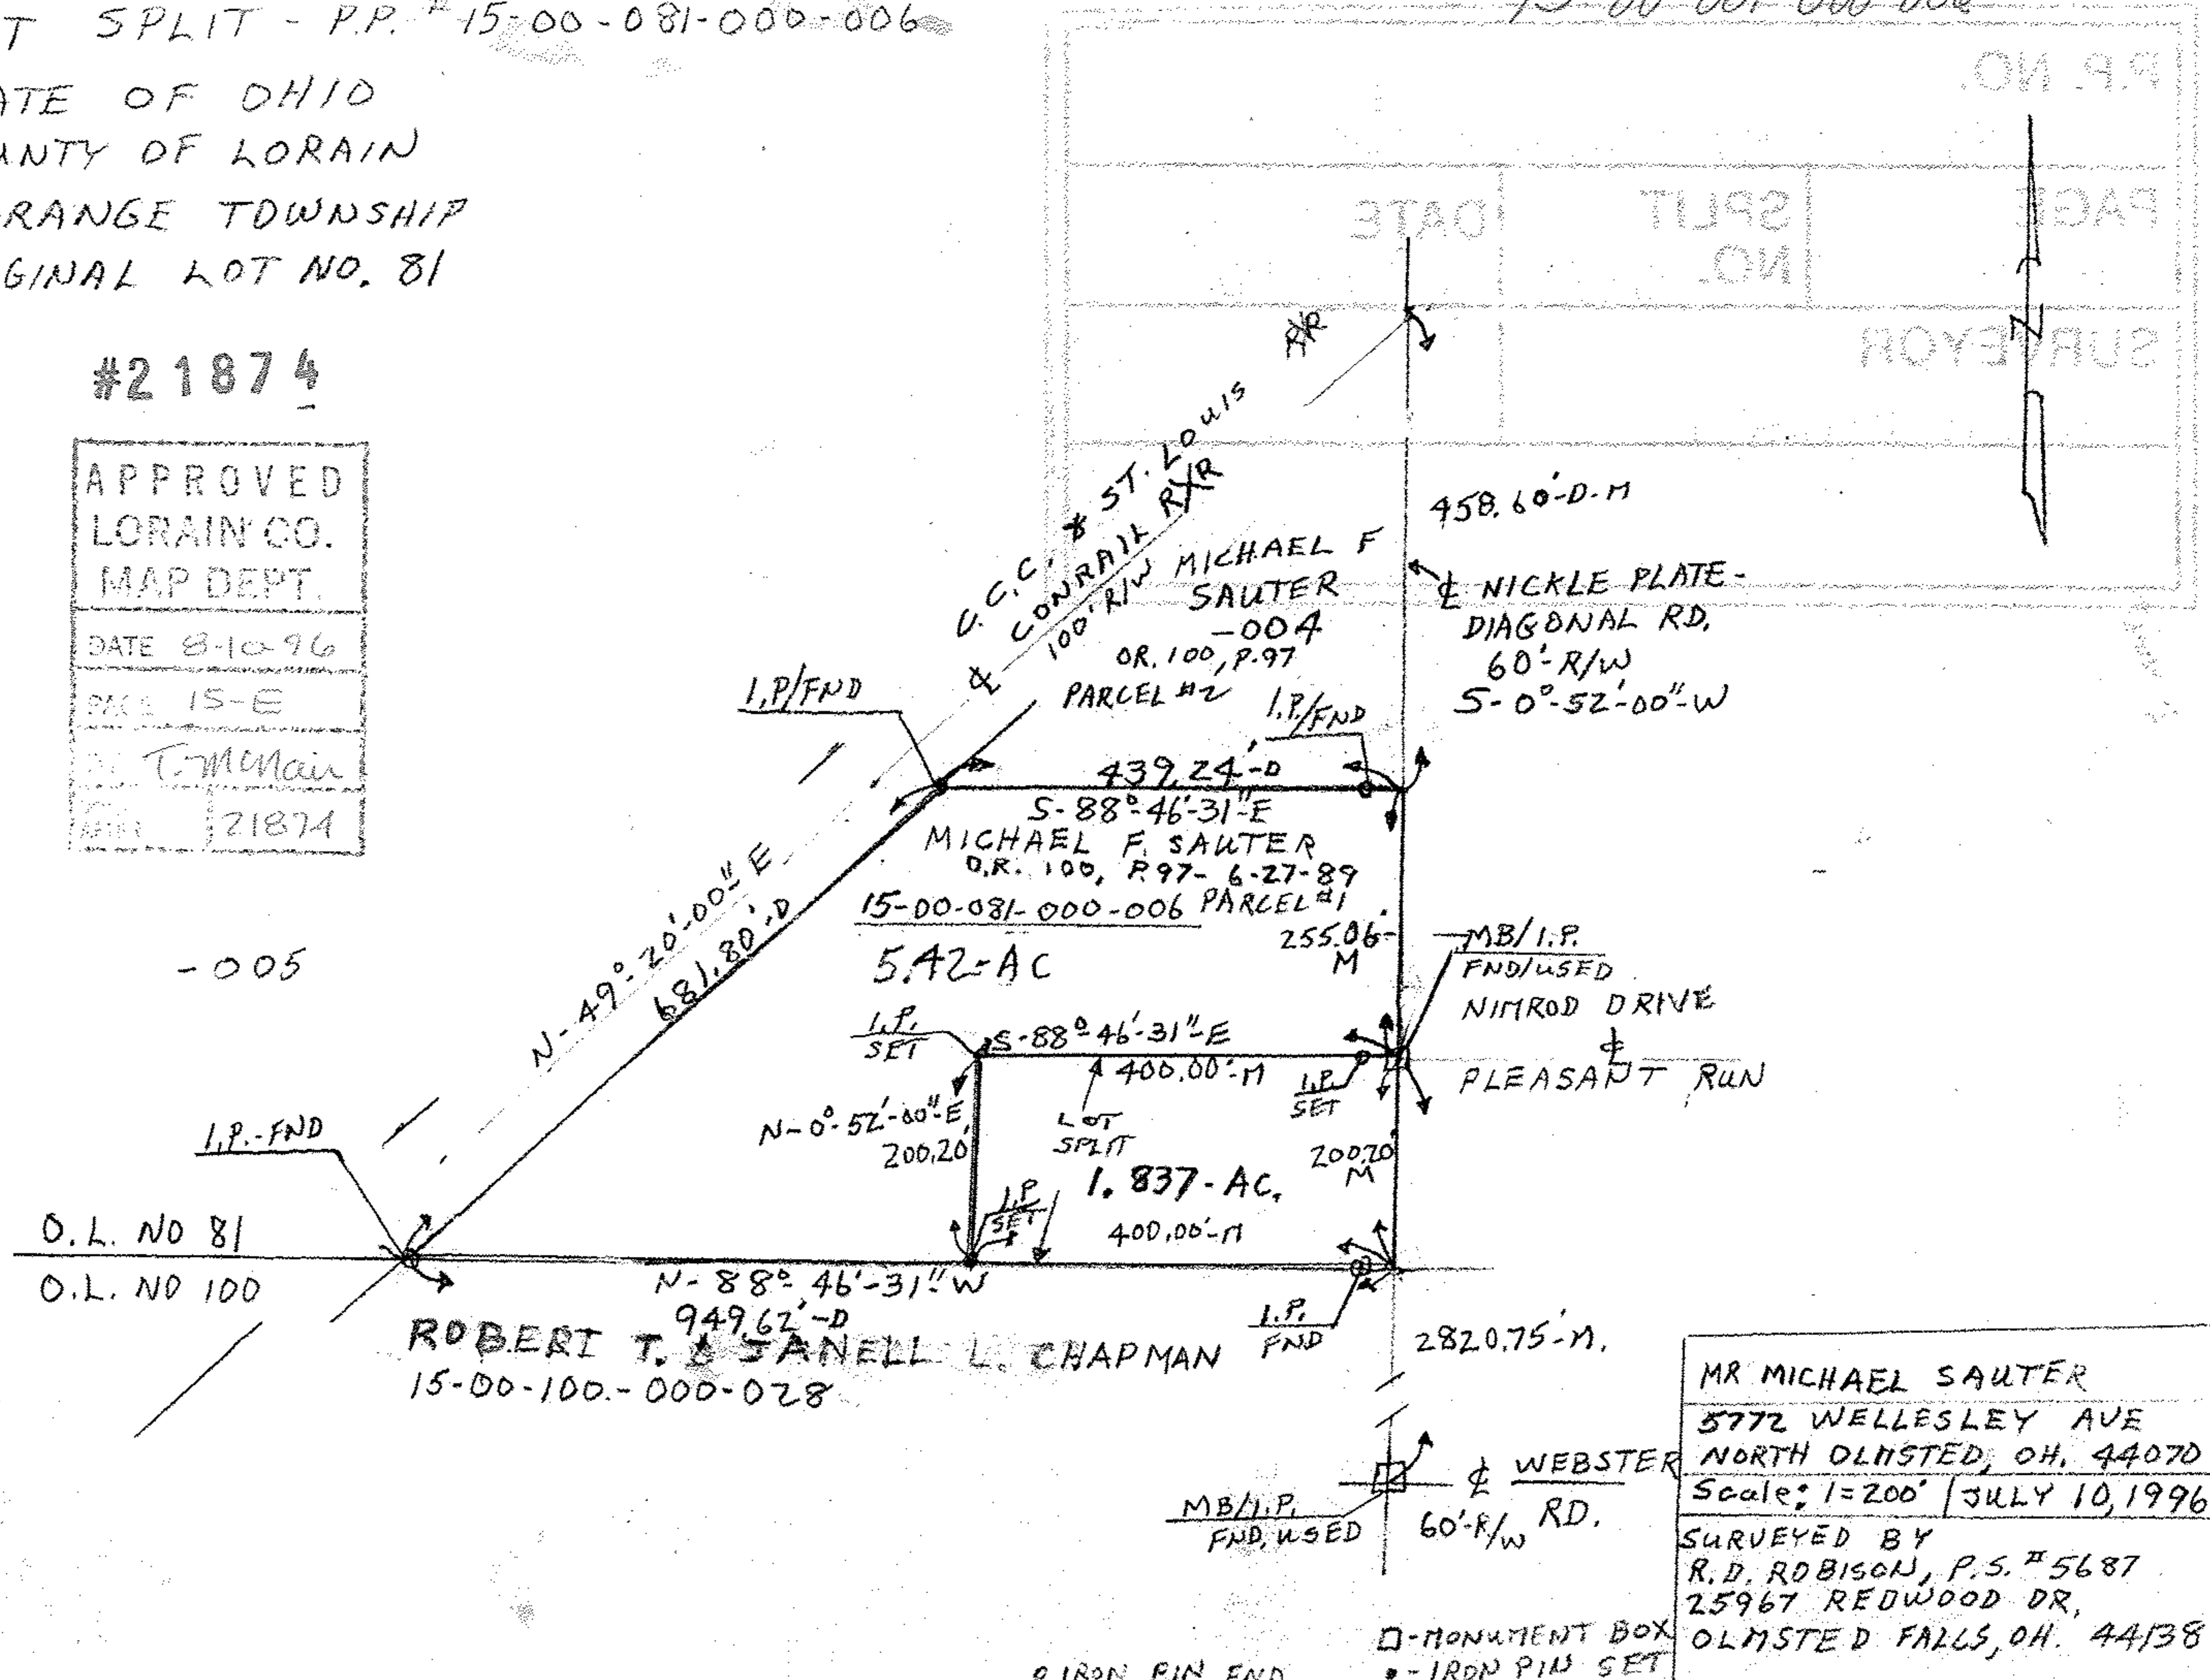 T SPLIT - P.P. # 15-00-081-000-006
ATE OF OHIO
UNTY OF LORAIN
RANGE TOWNSHIP
GINAL LOT NO. 81
#21874
APPROVED
LORAIN CO.
MAP DEPT.
DATE 8-10-96
PAGE 15-E
T. McNair
21874
P.P. NO.
PAGE
SPLIT
NO.
DATE
SURVEYOR
N
R/R
C.C.C. & ST. LOUIS
CONRAIL R/R
100' R/W
MICHAEL F
SAUTER
-004
OR. 100, P.97
PARCEL #2
458.60'-D-M
℄ NICKLE PLATE-
DIAGONAL RD,
60'-R/W
S-0°-52'-00"-W
I.P/FND
℄
I.P./FND
439.24'-D
S-88°-46'-31"-E
MICHAEL F. SAUTER
O.R. 100, P.97- 6-27-89
15-00-081-000-006 PARCEL #1
255.06'-
M
5.42-AC
N-49°-20'-00"-E
681.80'-D
-005
MB/I.P.
FND/USED
NIMROD DRIVE
℄
PLEASANT RUN
I.P.
SET
S-88°-46'-31"-E
400.00'-M
I.P.
SET
N-0°-52'-00"-E
200.20'
LOT
SPLIT
200.20'
M
1.837-AC.
I.P.
SET
400.00'-M
I.P.-FND
O.L. NO 81
O.L. NO 100
N-88°-46'-31"-W
949.62'-D
I.P.
FND
ROBERT T. & JANELL L. CHAPMAN
15-00-100.-000-028
2820.75'-M.
MB/I.P.
FND, USED
℄ WEBSTER
RD.
60'-R/W
MR MICHAEL SAUTER
5772 WELLESLEY AVE
NORTH OLMSTED, OH. 44070
Scale: 1=200' / JULY 10, 1996
SURVEYED BY
R.D. ROBISON, P.S. #5687
25967 REDWOOD DR,
OLMSTED FALLS, OH. 44138
□-MONUMENT BOX
•-IRON PIN SET
IRON PIN FND